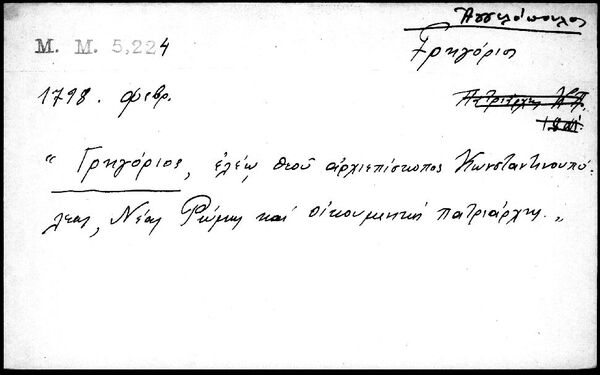 Αγγελόπουλος
M. M. 5,224
Γρηγόριος
1798. φεβρ.
Πατριάρχης Κ.Π.
"Γρηγόριος, ἐλέῳ θεοῦ ἀρχιεπίσκοπος Κωνσταντινουπό-
λεως, Νέας Ρώμης καί οἰκουμενικός πατριάρχης."